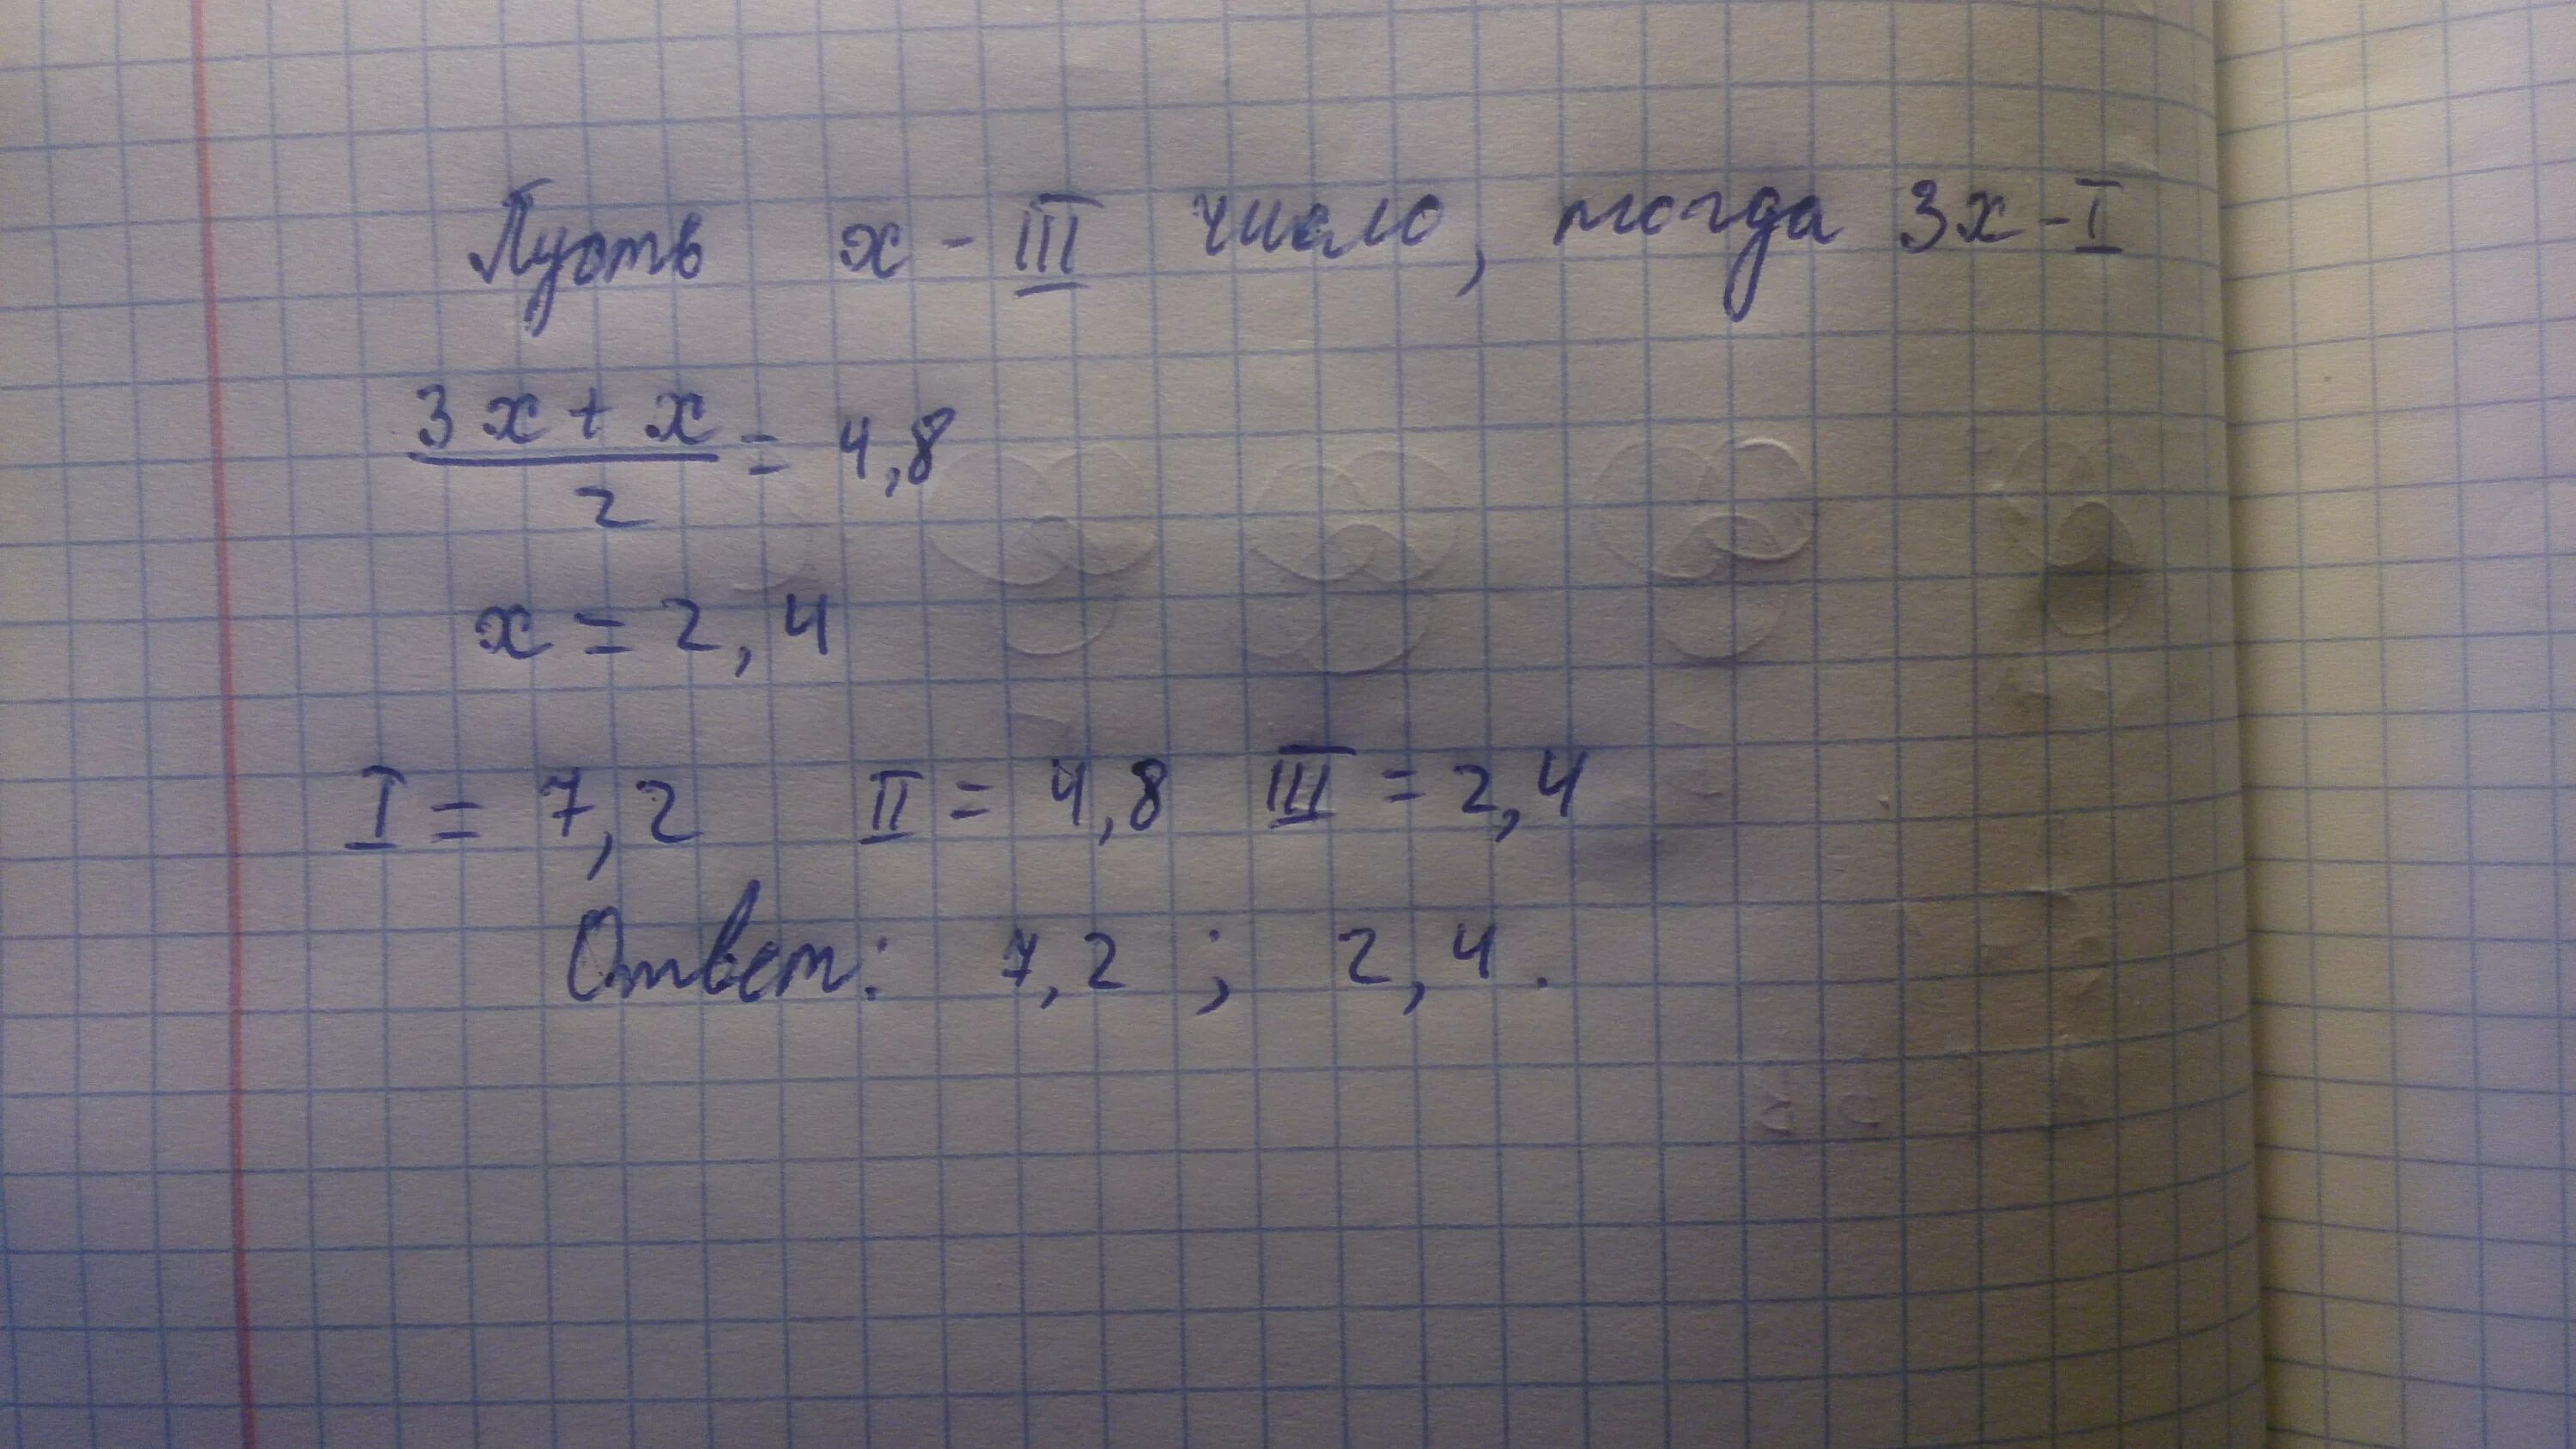 Пусть x - III число, тогда 3x - I
3x + x
2
= 4,8
x = 2,4
I = 7,2 II = 4,8 III = 2,4
Ответ: 7,2 ; 2,4.